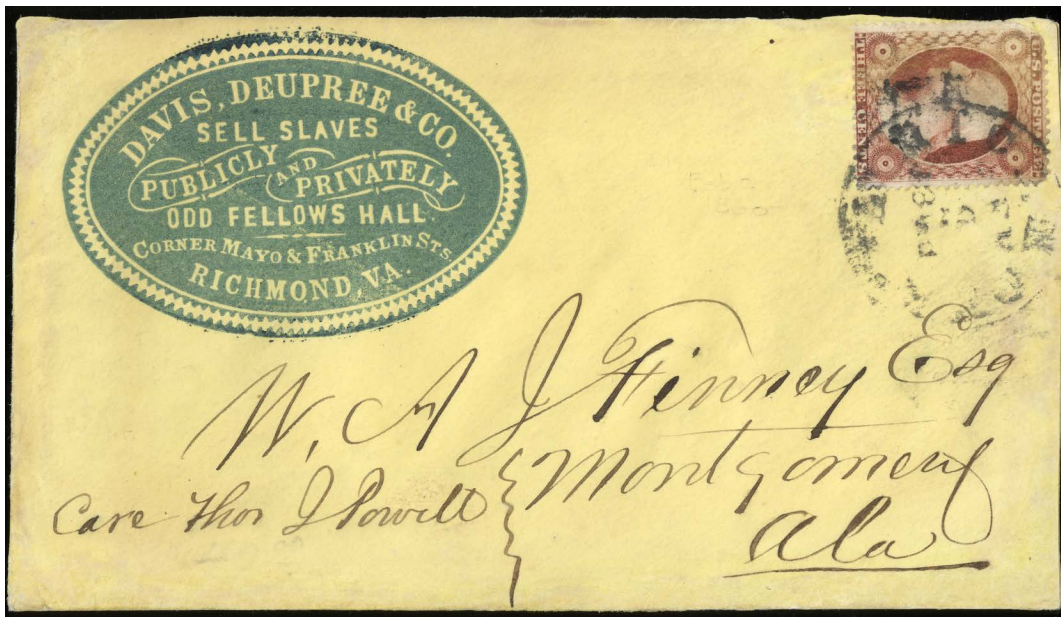 DAVIS, DEUPREE & CO.
SELL SLAVES
PUBLICLY AND PRIVATELY
ODD FELLOWS HALL.
CORNER MAYO & FRANKLIN STS.
RICHMOND, VA.
U.S. POSTAGE
THREE CENTS
W. A J Finney Esq
Care Thos J Powell
Montgomery
Ala